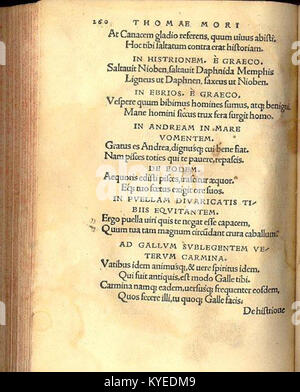 260 THOMAE MORI
At Canacem gladio referens, quum uiuus abisti,
Hoc tibi saltatum contra erat historiam.
IN HISTRIONEM, È GRAECO.
Saltauit Nioben, saltauit Daphnida Memphis
Ligneus ut Daphnen, saxeus ut Nioben.
IN EBRIOS, È GRAECO.
Vespere quum bibimus homines sumus, atq; benigni
Mane homini siccus trux fera surgit homo.
IN ANDREAM IN MARE
VOMENTEM.
Gratus es Andrea, dignusq; cui bene fiat.
Nam pisces toties qui te pauere, repascis.
DE EODEM.
Aequoris edisti pisces, æquor.
Eq; tuo fœtus exigit ore suos.
IN PVELLAM DIVARICATIS TI
BIIS EQVITANTEM.
Ergo puella uiri quis te negat esse capacem,
Quum tua tam magnum circūdant crura caballum?
AD GALLVM SVBLEGENTEM VE
TERVM CARMINA.
Vatibus idem animusq;, & uere spiritus idem
Qui fuit antiquis, est modo Galle tibi.
Carmina namq; eadem, uersusq; frequenter eosdem,
Quos fecere illi, tu quoq; Galle facis.
De histrione
alamy
Image ID: KYEDM9
www.alamy.com